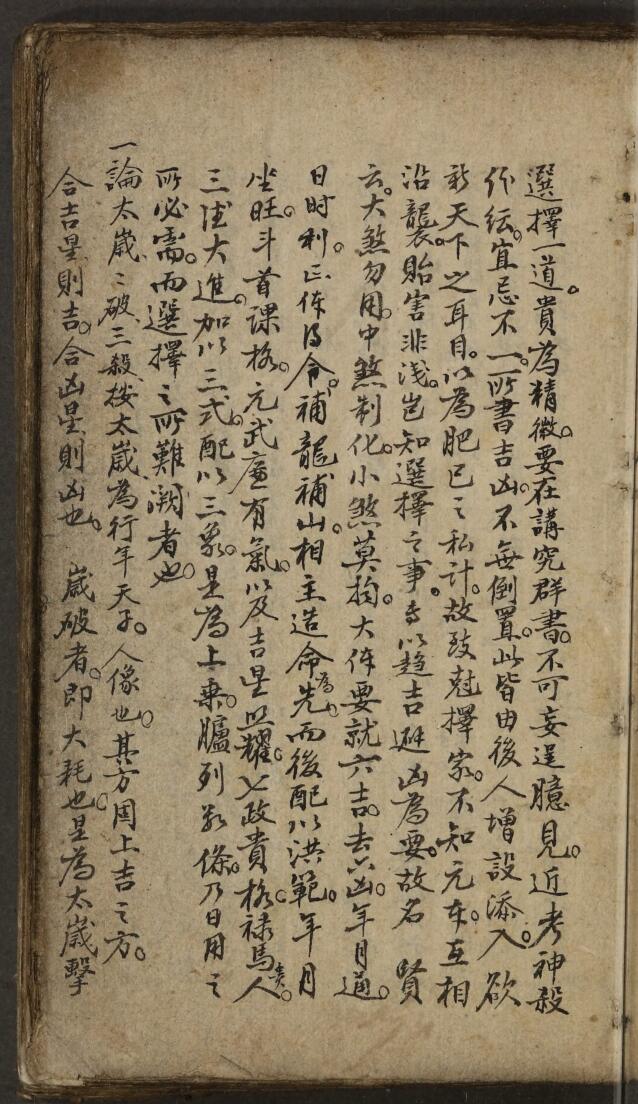 選擇一道。貴為精微。要在講究群書。不可妄逞臆見。近考神殺
作紜。宜忌不一。所書吉凶。不無倒置。此皆由後人增設添入。欲
新天下之耳目。以為肥已之私計。故致尅擇家。不知元本。互相
沿襲。貽害非淺。豈知選擇之事。專以趋吉避凶為要。故名賢
云。大煞勿用。中煞制化。小煞莫拘。大体要就六吉。去六凶。年月通。
日时利。正体得令。補龍補山。相主造命為先。而後配以洪範。年月
坐旺。斗首課格。元武廉有氣。以及吉星照耀。七政貴格。祿馬貴人。
三德大進。加以三式。配以三象。是為上乘。臚列数條。乃日用之
所必需。而選擇之所難濶者也。
一論太歲、、破、三殺、按太歲為行年天子。人像也。其方固上吉之方。
合吉星則吉。合凶星則凶也。 歲破者。即大耗也。是為太歲擊